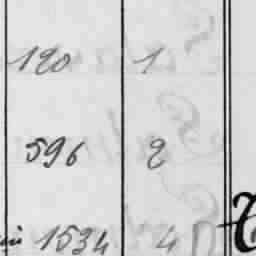 120 1
596 2
1534 4